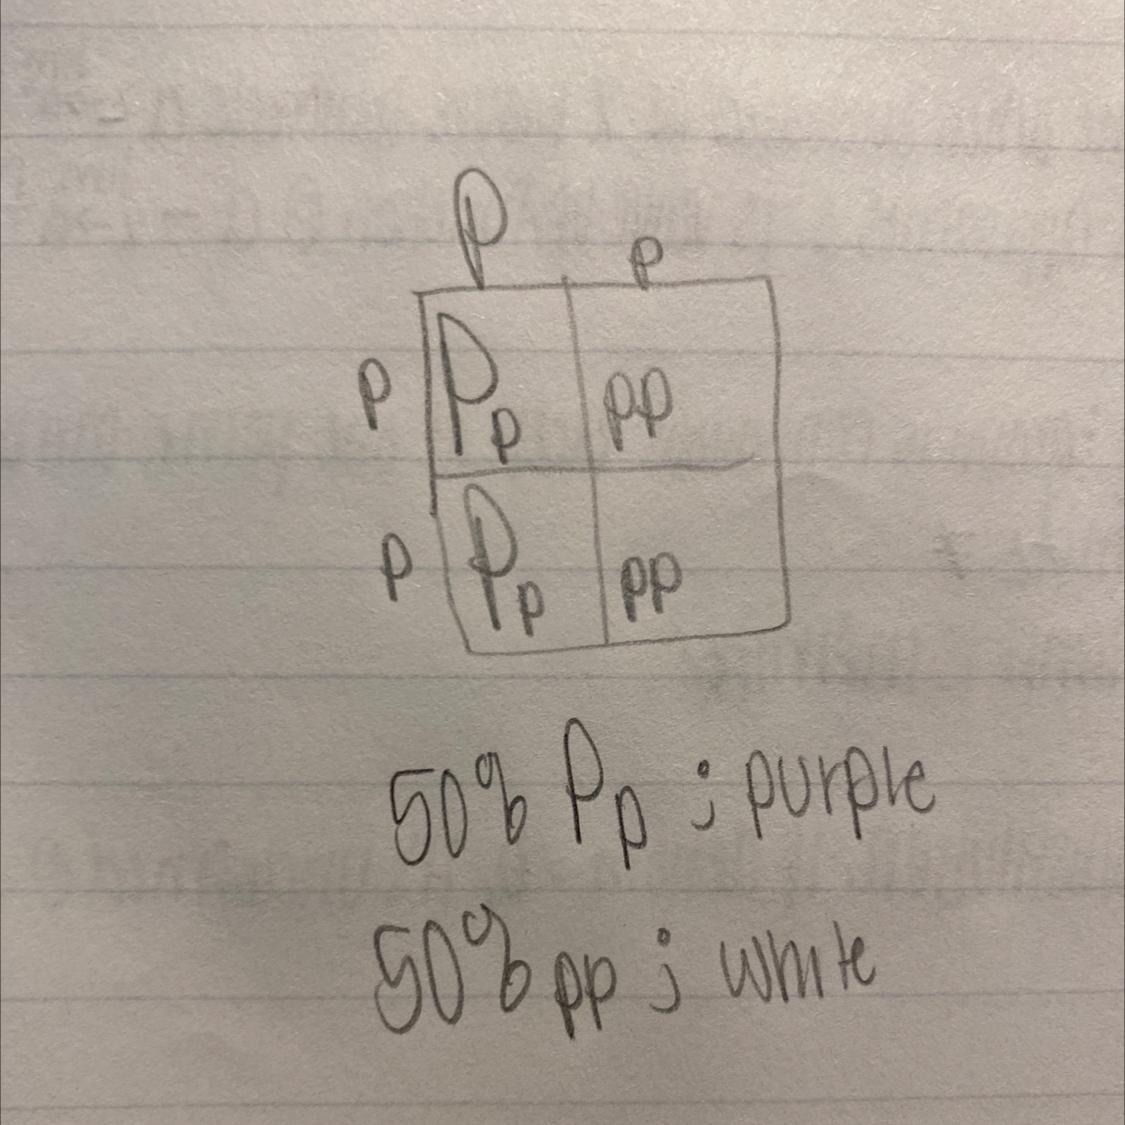 P p
p Pp pp
p Pp pp
50% Pp ; purple
50% pp ; white